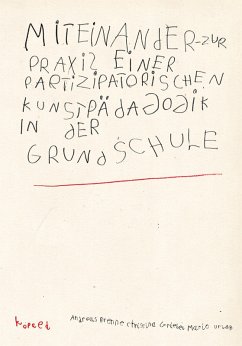 MITEINANDER-ZUR
PRAXIS EINER
PARTIZIPATORISCHEN
KUNSTPÄDAGOGIK
IN DER
GRUNDSCHULE
kopaed
Andreas Brenne Christina Griebel Mario Urlaß